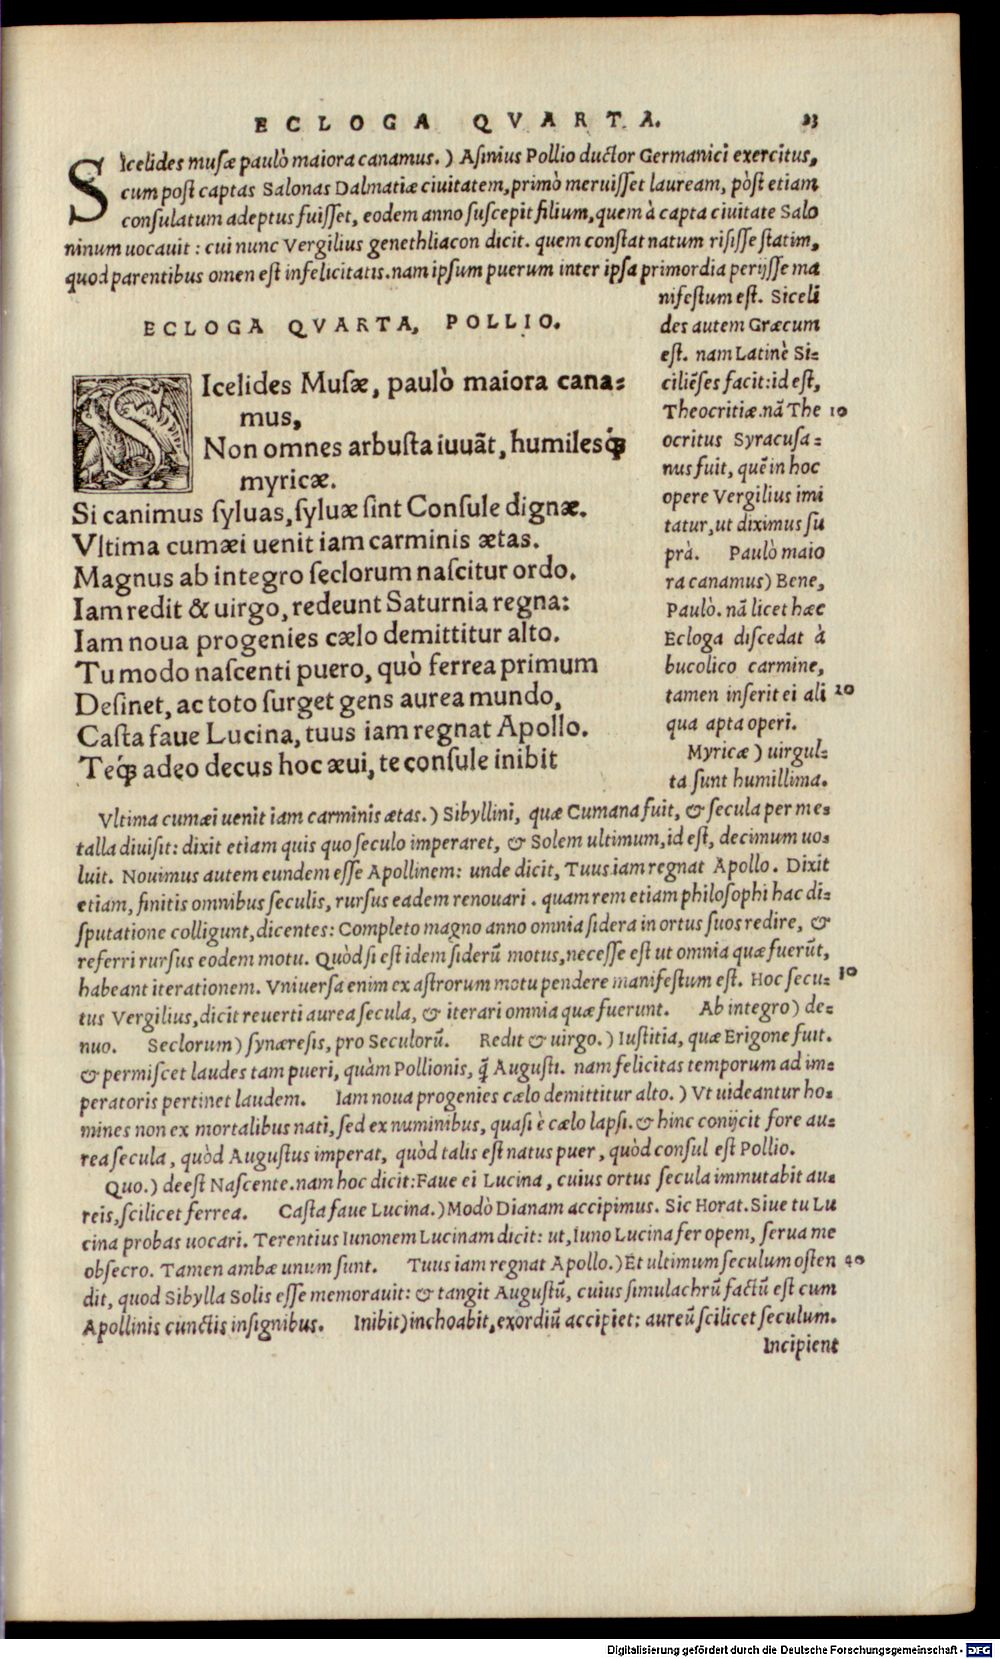 ECLOGA QVARTA. 23
SIcelides musæ paulò maiora canamus.) Asinius Pollio ductor Germanici exercitus,
cum post captas Salonas Dalmatiæ ciuitatem, primò meruisset lauream, pòst etiam
consulatum adeptus fuisset, eodem anno suscepit filium, quem à capta ciuitate Salo
ninum uocauit: cui nunc Vergilius genethliacon dicit. quem constat natum risisse statim,
quod parentibus omen est infelicitatis. nam ipsum puerum inter ipsa primordia perijsse ma
nifestum est. Siceli
des autem Græcum
est. nam Latinè Si=
ciliẽses facit: id est,
Theocritiæ. nã The 10
ocritus Syracusa=
nus fuit, quẽ in hoc
opere Vergilius imi
tatur, ut diximus su
prà. Paulò maio
ra canamus) Bene,
Paulò. nã licet hæc
Ecloga discedat à
bucolico carmine,
tamen inserit ei ali 20
qua apta operi.
Myricæ) uirgul=
ta sunt humillima.
ECLOGA QVARTA, POLLIO.
SIcelides Musæ, paulò maiora cana=
mus,
Non omnes arbusta iuuãt, humilesq́;
myricæ.
Si canimus syluas, syluæ sint Consule dignæ.
Vltima cumæi uenit iam carminis ætas.
Magnus ab integro seclorum nascitur ordo.
Iam redit & uirgo, redeunt Saturnia regna:
Iam noua progenies cælo demittitur alto.
Tu modo nascenti puero, quò ferrea primum
Desinet, ac toto surget gens aurea mundo,
Casta faue Lucina, tuus iam regnat Apollo.
Teq́; adeo decus hoc æui, te consule inibit
Vltima cumæi uenit iam carminis ætas.) Sibyllini, quæ Cumana fuit, & secula per me=
talla diuisit: dixit etiam quis quo seculo imperaret, & Solem ultimum, id est, decimum uo=
luit. Nouimus autem eundem esse Apollinem: unde dicit, Tuus iam regnat Apollo. Dixit
etiam, finitis omnibus seculis, rursus eadem renouari. quam rem etiam philosophi hac di=
sputatione colligunt, dicentes: Completo magno anno omnia sidera in ortus suos redire, &
referri rursus eodem motu. Quòd si est idem siderũ motus, necesse est ut omnia quæ fuerũt,
habeant iterationem. Vniuersa enim ex astrorum motu pendere manifestum est. Hoc secu= 30
tus Vergilius, dicit reuerti aurea secula, & iterari omnia quæ fuerunt. Ab integro) de=
nuo. Seclorum) synæresis, pro Seculorũ. Redit & uirgo.) Iustitia, quæ Erigone fuit.
& permiscet laudes tam pueri, quàm Pollionis, q̃ Augusti. nam felicitas temporum ad im=
peratoris pertinet laudem. Iam noua progenies cælo demittitur alto.) Vt uideantur ho=
mines non ex mortalibus nati, sed ex numinibus, quasi è cælo lapsi. & hinc conijcit fore au=
rea secula, quòd Augustus imperat, quòd talis est natus puer, quòd consul est Pollio.
Quo.) deest Nascente. nam hoc dicit: Faue ei Lucina, cuius ortus secula immutabit au=
reis, scilicet ferrea. Casta faue Lucina.) Modò Dianam accipimus. Sic Horat. Siue tu Lu
cina probas uocari. Terentius Iunonem Lucinam dicit: ut, Iuno Lucina fer opem, serua me
obsecro. Tamen ambæ unum sunt. Tuus iam regnat Apollo.) Et ultimum seculum osten 40
dit, quod Sibylla Solis esse memorauit: & tangit Augustũ, cuius simulachrũ factũ est cum
Apollinis cunctis insignibus. Inibit) inchoabit, exordiũ accipiet: aureũ scilicet seculum.
Incipient
Digitalisierung gefördert durch die Deutsche Forschungsgemeinschaft - DFG